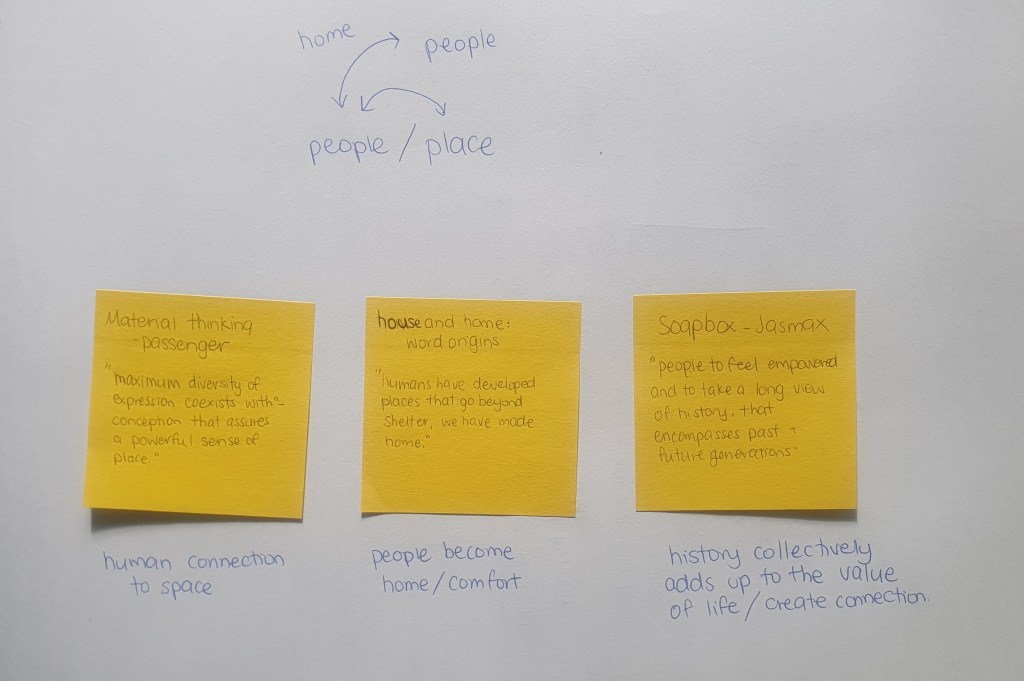 home people
people / place
Material thinking
- passenger
"maximum diversity of
expression coexists with a
conception that assures
a powerful sense of
place."
house and home:
word origins
"humans have developed
places that go beyond
shelter, we have made
home."
Soapbox - Jasmax
"people to feel empowered
and to take a long view
of history, that
encompasses past +
future generations"
human connection
to space
people become
home/comfort
history collectively
adds up to the value
of life / create connection.